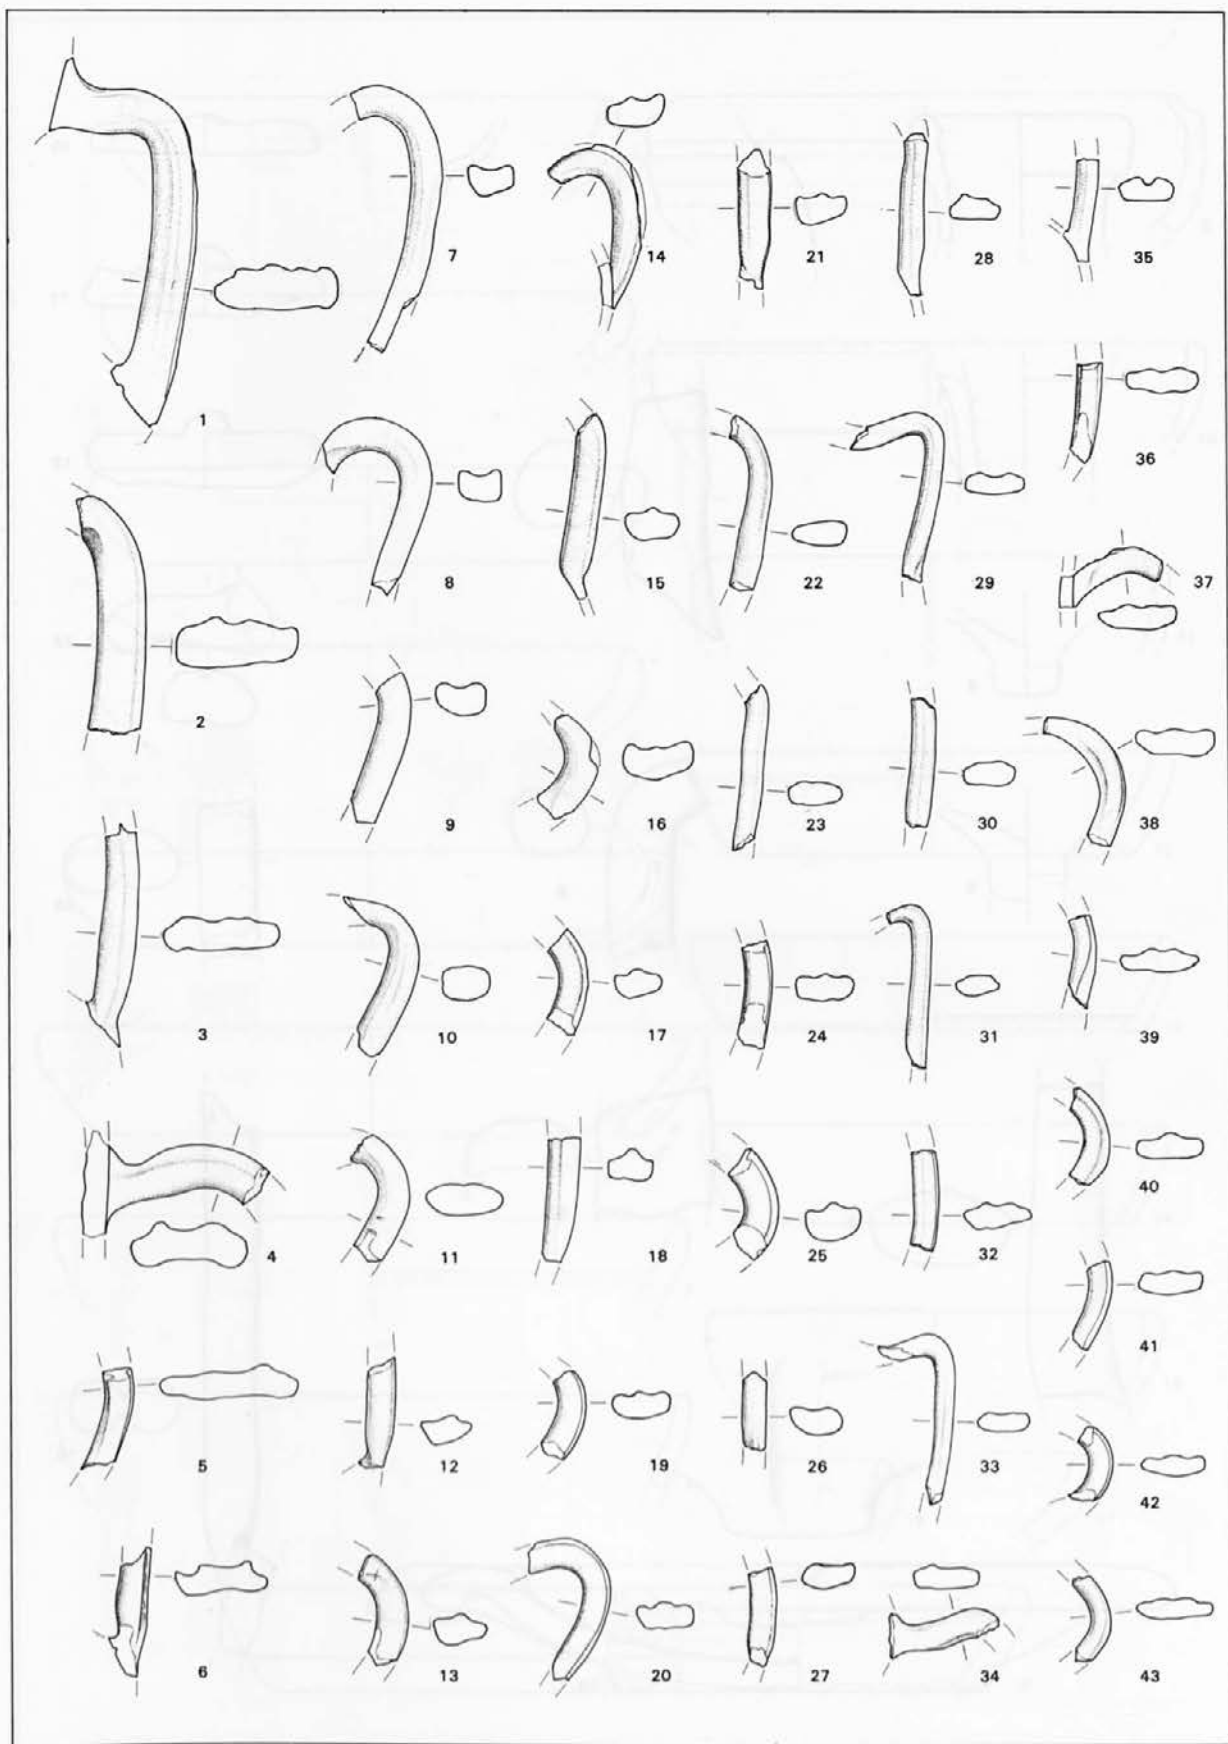 1
2
3
4
5
6
7
8
9
10
11
12
13
14
15
16
17
18
19
20
21
22
23
24
25
26
27
28
29
30
31
32
33
34
35
36
37
38
39
40
41
42
43